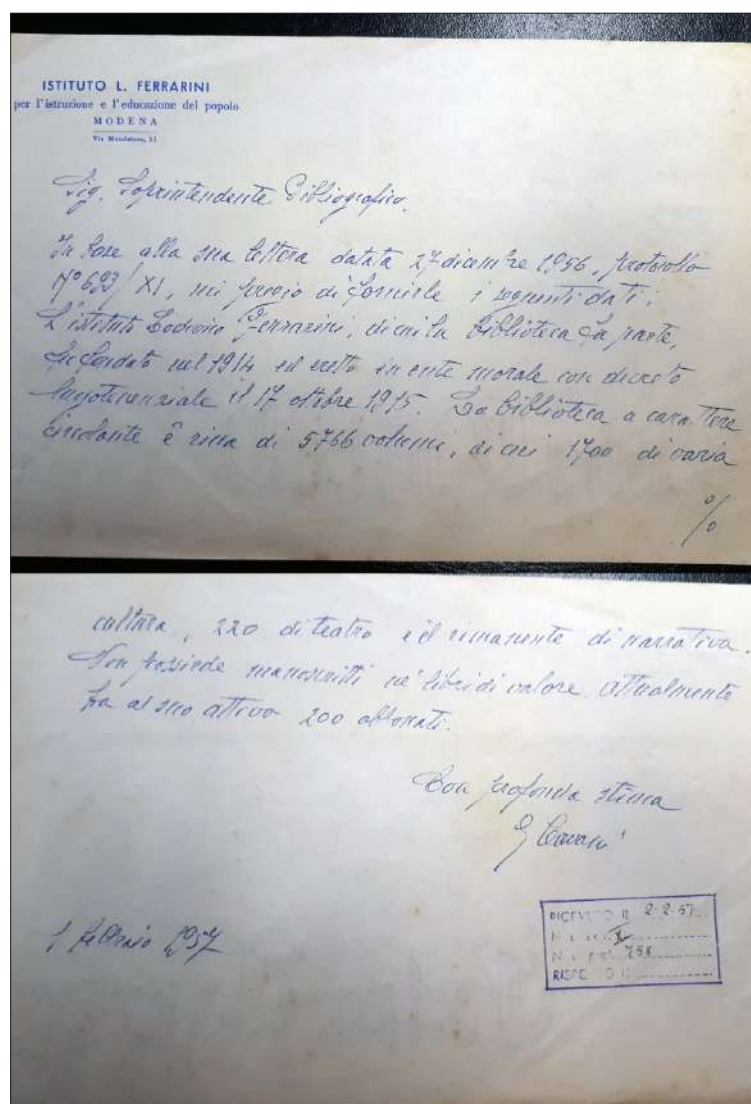 ISTITUTO L. FERRARINI
per l'istruzione e l'educazione del popolo
MODENA
Sig. Soprintendente Bibliografico.
In base alla sua lettera datata 27 dicembre 1956, protocollo
N° 693/XI, mi pregio di fornirle i seguenti dati:
L'istituto Lodovico Ferrarini, di cui la biblioteca fa parte,
fu fondato nel 1914 ed eretto in ente morale con decreto
luogotenenziale il 17 ottobre 1915. La biblioteca a carattere
circolante è ricca di 5766 volumi, di cui 1700 di varia
%
cultura, 220 di teatro e il rimanente di narrativa.
Non possiede manoscritti né libri di valore. Attualmente
ha al suo attivo 200 abbonati.
Con profonda stima
1 febbraio 1957
RICEVUTO IL 2-2-57
758